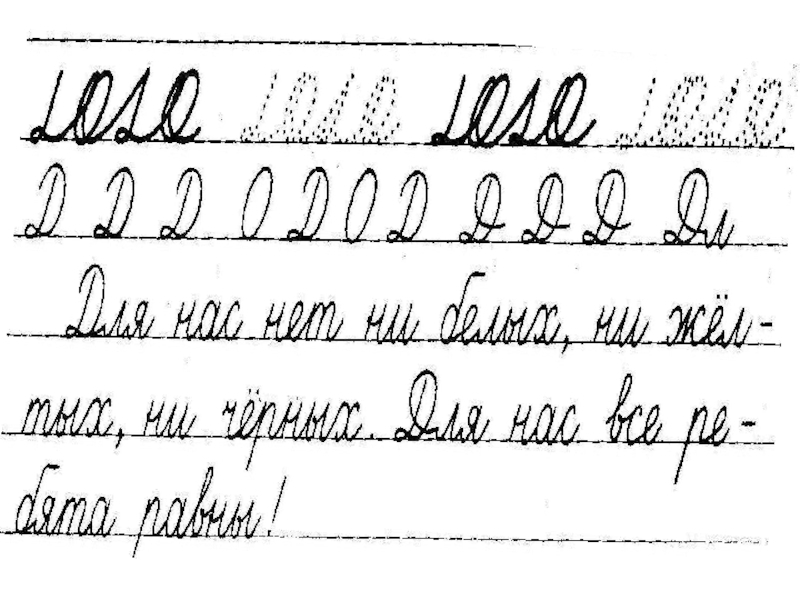 Д Д Д О Д О Д Д Д Д Дл
Для нас нет ни белых, ни жёл-
тых, ни чёрных. Для нас все ре-
бята равны!